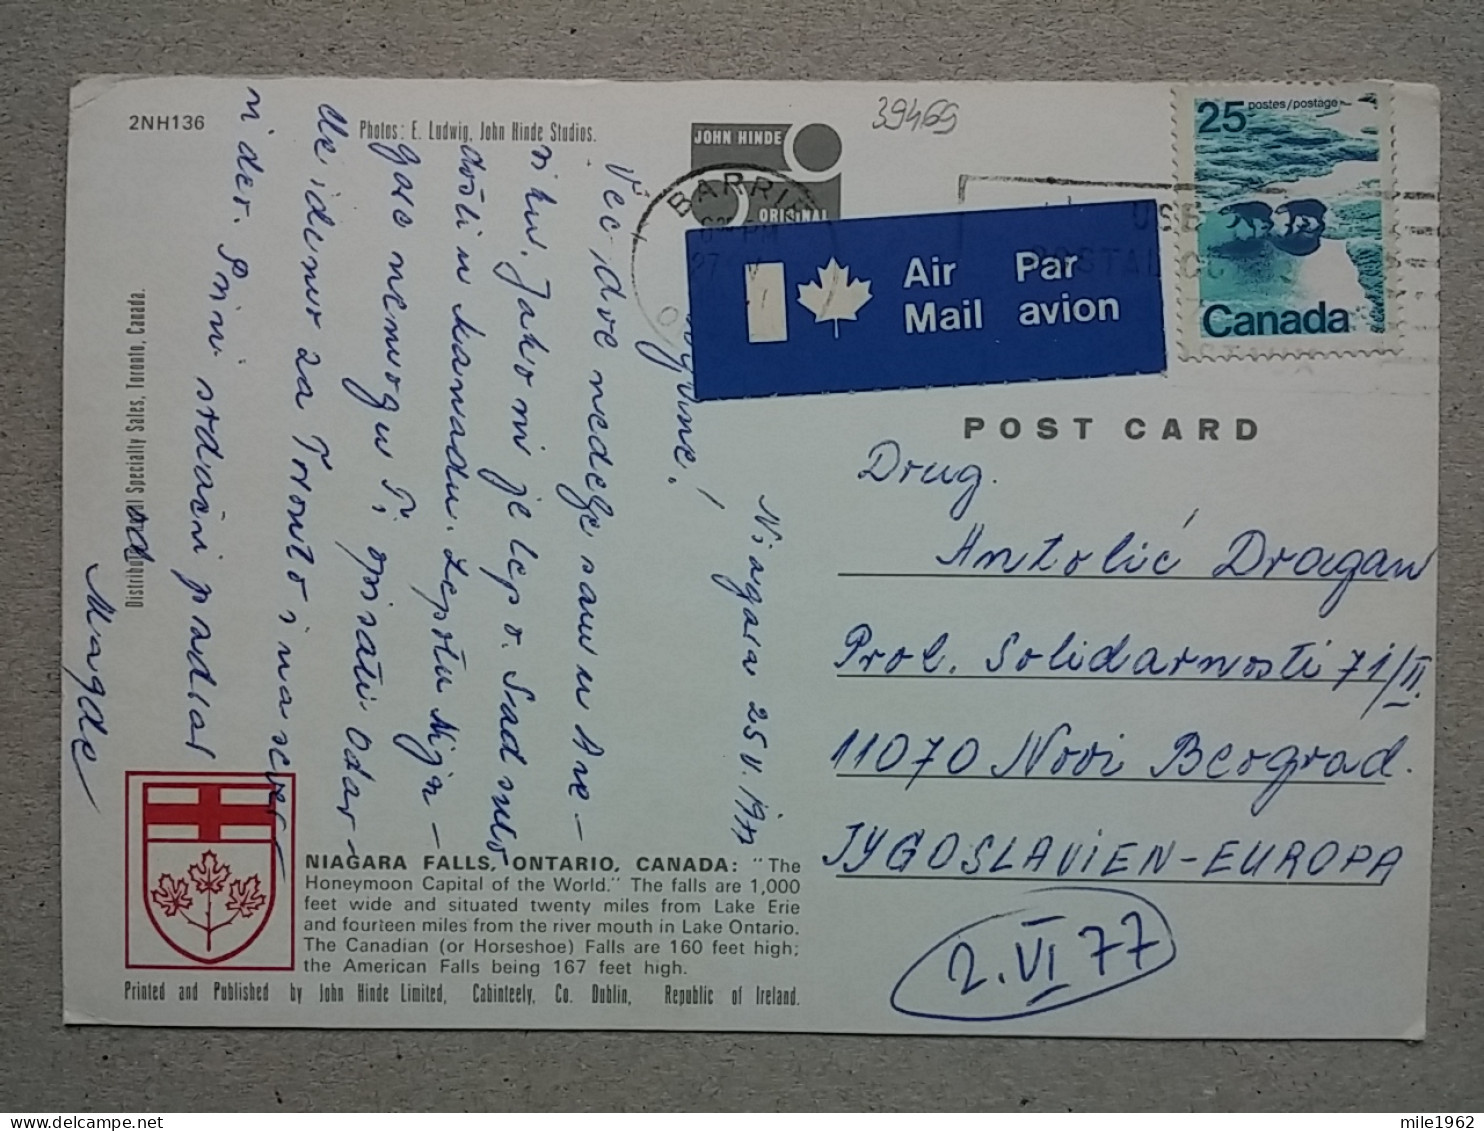 2NH136
Photos: E. Ludwig, John Hinde Studios.
JOHN HINDE
ORIGINAL
39469
BARRIE
PM
USE
POSTAL CODE
25 postes/postage
Canada
Air Mail
Par avion
POST CARD
Niagara 25 V. 1977
Već dve nedelje sam u Ame-
rihu. Jako mi je lepo. Sad smo
došli u Kanadu. Lepotu Nija-
gare nemogu Ti opisati. Odav-
de idemo za Toronto i na sever
Primi srdačni pozdrav
od
Magde
Drug.
Antolić Dragan
Prol. Solidarnosti 71/II.
11070 Novi Beograd.
JYGOSLAVIEN-EUROPA
2.VI 77
NIAGARA FALLS, ONTARIO, CANADA: "The
Honeymoon Capital of the World." The falls are 1,000
feet wide and situated twenty miles from Lake Erie
and fourteen miles from the river mouth in Lake Ontario.
The Canadian (or Horseshoe) Falls are 160 feet high;
the American Falls being 167 feet high.
Printed and Published by John Hinde Limited, Cabinteely, Co. Dublin, Republic of Ireland.
Specialty Sales, Toronto, Canada.
mile1962